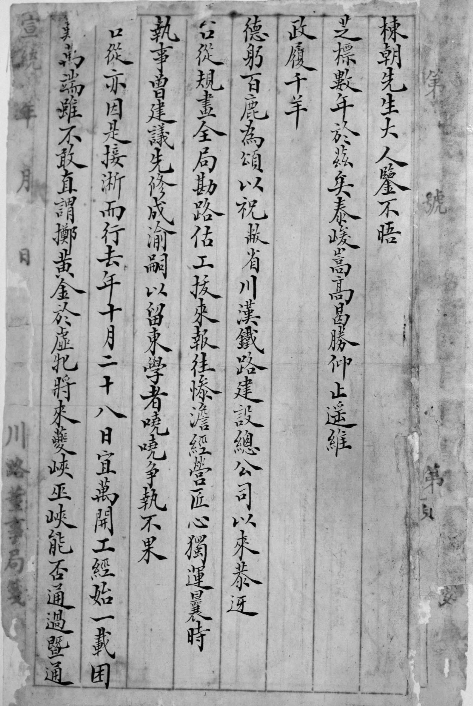 第　號
第　頁
棟朝先生大人鑒不晤
芝標數年於茲矣泰峻嵩高曷勝仰止遥維
政履千羊
德躬百鹿為頌以祝敝省川漢鐵路建設總公司以來恭迓
台從規畫全局勘路估工拔來報往慘澹經營匠心獨運曩時
執事曾建議先修成渝嗣以留東學者嘵嘵争執不果
台從亦因是接淅而行去年十月二十八日宜萬開工經始一載困
難萬端雖不敢直謂擲黄金於虛牝將來夔峽巫峽能否通過暨通
宣　年　月　日　川路董事局箋